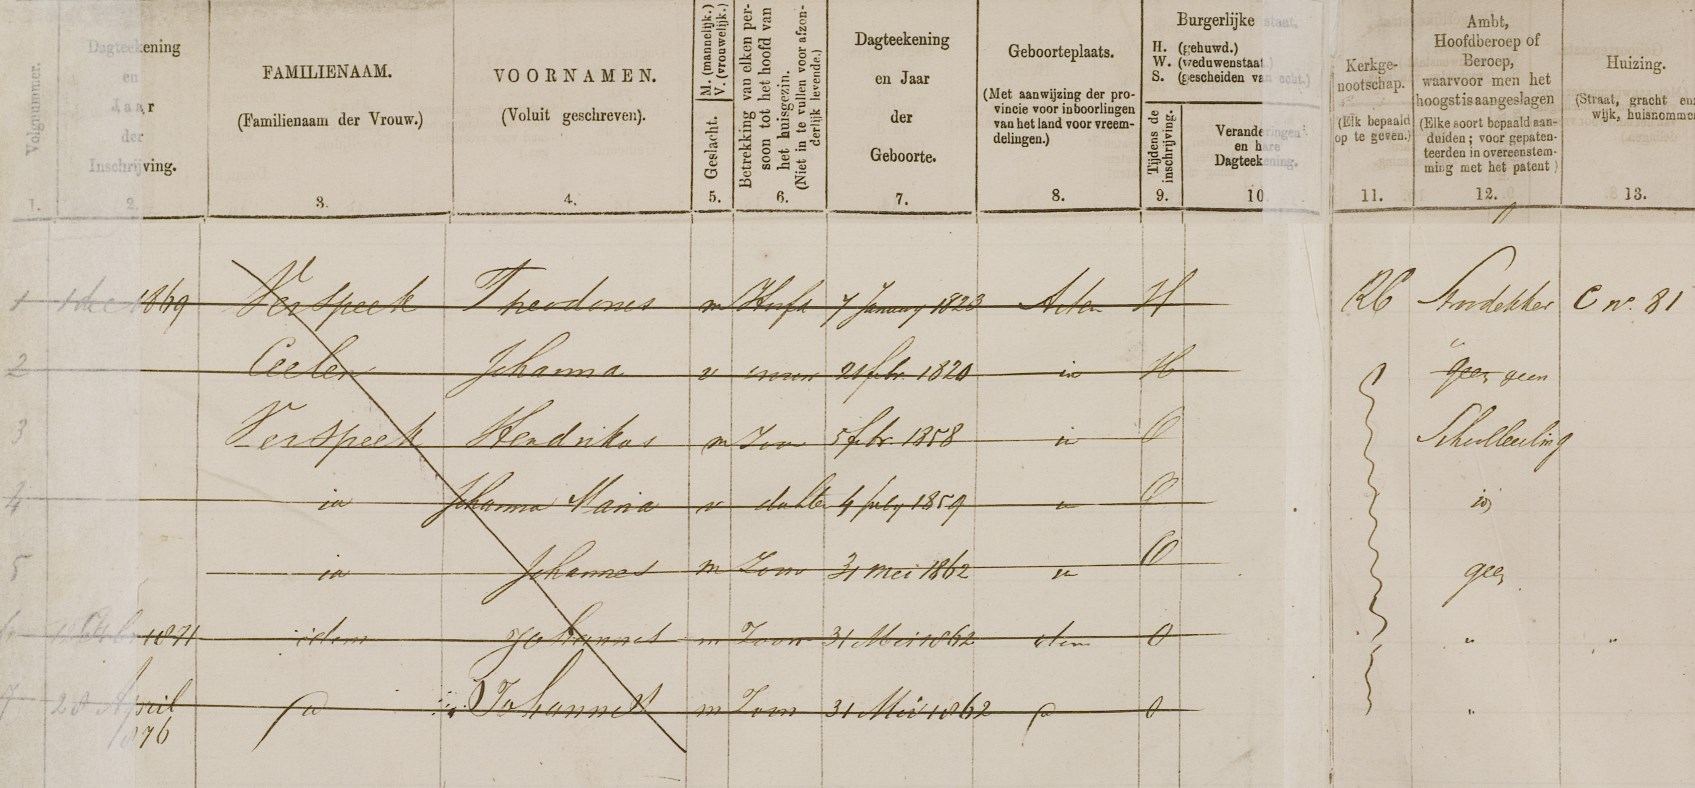 Volgnummer.
Dagteekening en Jaar der Inschrijving.
FAMILIENAAM.
(Familienaam der Vrouw.)
VOORNAMEN.
(Voluit geschreven).
Geslacht. M. (mannelijk.) V. (vrouwelijk.)
Betrekking van elken persoon tot het hoofd van het huisgezin. (Niet in te vullen voor afzonderlijk levende.)
Dagteekening en Jaar der Geboorte.
Geboorteplaats.
(Met aanwijzing der provincie voor inboorlingen van het land voor vreemdelingen.)
Burgerlijke stant.
H. (gehuwd.)
W. (weduwenstaat)
S. (gescheiden van echt.)
Tijdens de inschrijving.
Veranderingen en hare Dagteekening.
Kerkgenootschap.
(Elk bepaald op te geven.)
Ambt, Hoofdberoep of Beroep, waarvoor men het hoogst is aangeslagen
(Elke soort bepaald aanduiden; voor gepatenteerden in overeenstemming met het patent)
Huizing.
(Straat, gracht en wijk, huisnommer
1. 2. 3. 4. 5. 6. 7. 8. 9. 10 11. 12. 13.
1 1 dec 1869 Verspeek Theodorus m Hoofd 7 January 1823 H RC C no. 81
2 Ceelen Johanna v 21 febr. 1820 H geen geen
3 Verspeek Hendrikus m Zoon 5 febr. 1858 O Schoolleerling
4 Johanna Maria v docht 4 july 1859 O
5 Johannes m Zoon 31 mei 1862 O geen
6 1871 idem Johannes m Zoon 31 Mei 1862 idem O " "
7 28 April 1876 Johannes m Zoon 31 Mei 1862 O "